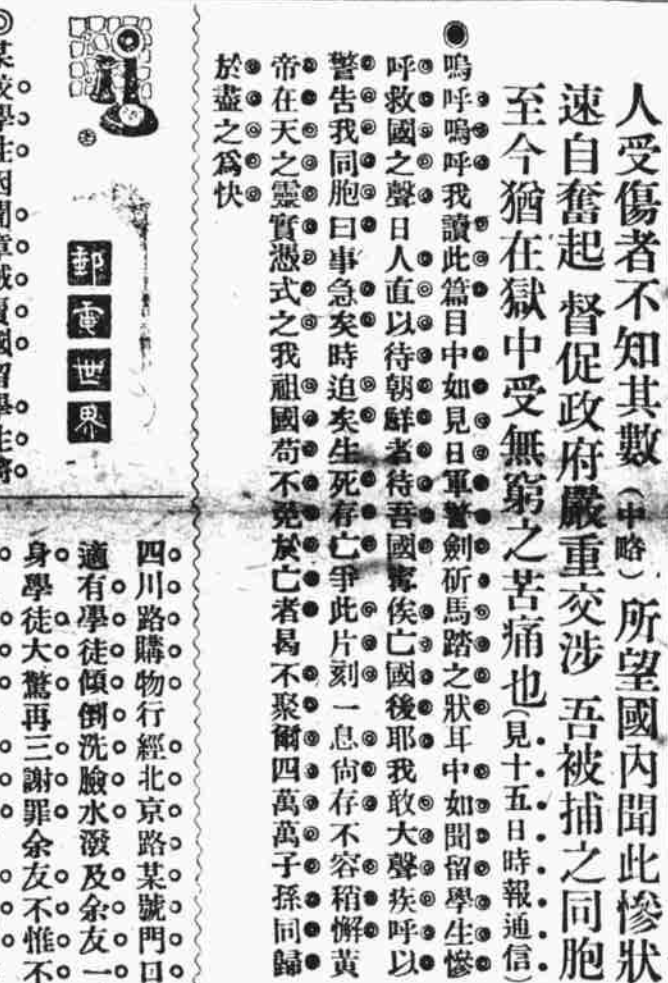 人受傷者不知其數（中略）所望國內聞此慘狀
速自奮起 督促政府嚴重交涉 吾被捕之同胞
至今猶在獄中受無窮之苦痛也（見十五日時報通信）
◉嗚呼嗚呼我讀此篇目中如見日軍警劍斫馬踏之狀耳中如聞留學生慘
呼救國之聲日人直以待朝鮮者待吾國寗俟亡國後耶我敢大聲疾呼以
警告我同胞曰事急矣時迫矣生死存亡爭此片刻一息尙存不容稍懈黃
帝在天之靈實憑式之我祖國苟不免於亡者曷不聚爾四萬萬子孫同歸
於盡之爲快
郵電世界
四川路購物行經北京路某號門口
適有學徒傾倒洗臉水潑及余友一
身學徒大驚再三謝罪余友不惟不